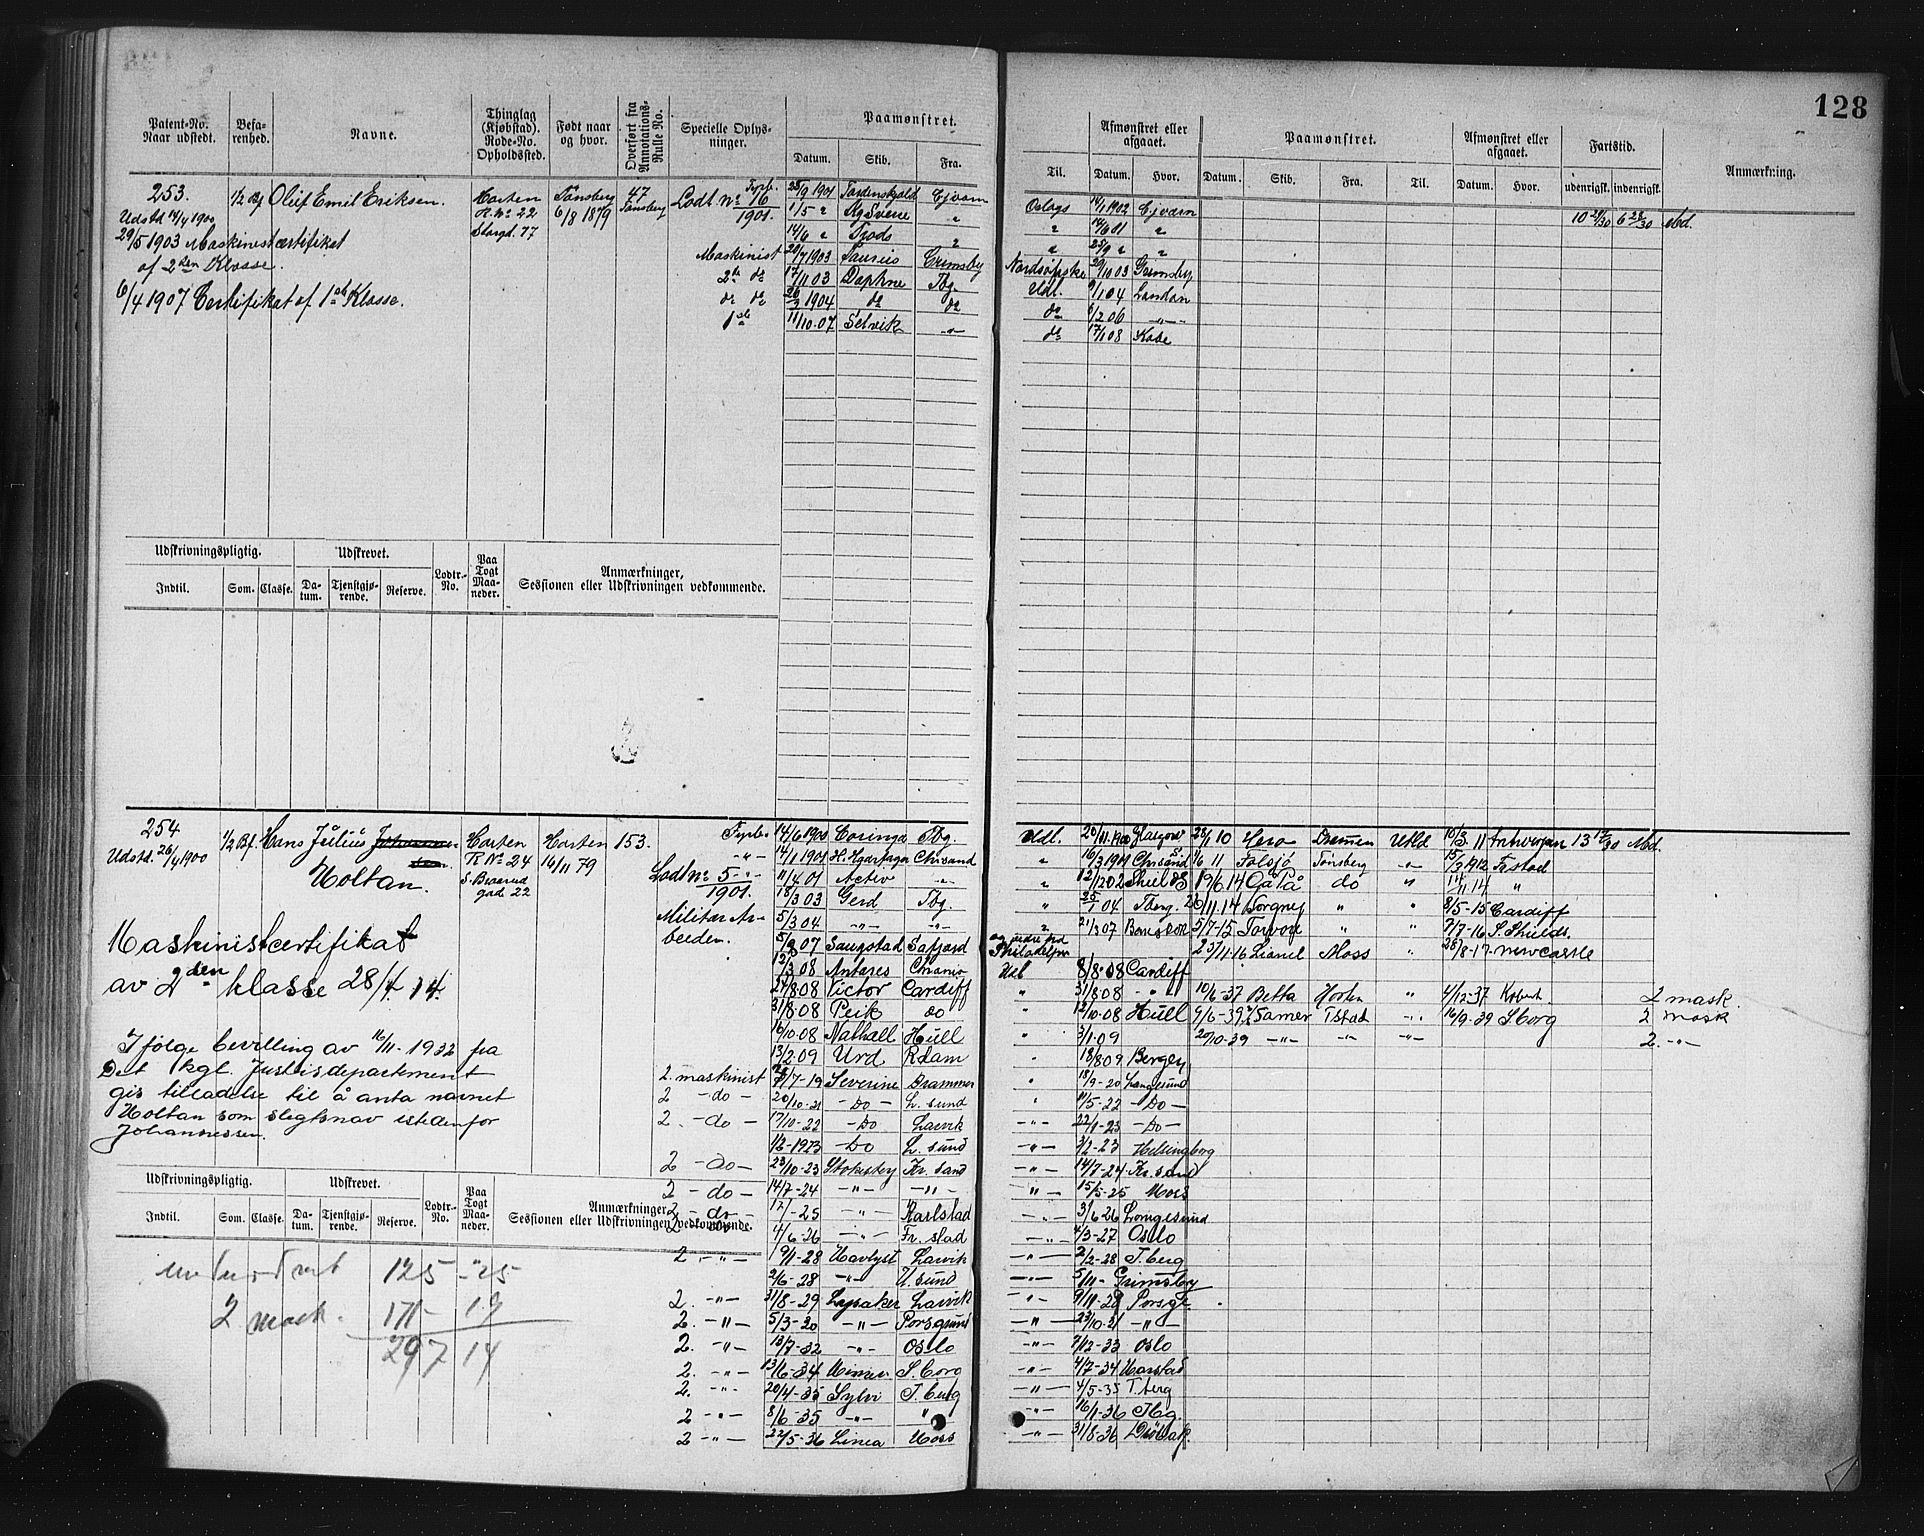 128
Patent-No. Naar udstedt.
Befarenhed.
Navne.
Thinglag (Kjøbstad). Rode-No. Opholdssted.
Født naar og hvor.
Overført fra Annotations-Rulle No.
Specielle Oplysninger.
Paamønstret.
Datum. Skib. Fra.
Til.
Afmønstret eller afgaaet.
Datum. Hvor.
Paamønstret.
Datum. Skib. Fra. Til.
Afmønstret eller afgaaet.
Datum. Hvor.
Fartstid.
udenrigsk. indenrigsk.
Anmærkning.
253.
Udstd 14/4 1900
1/2 Bf Oluf Emil Eriksen.
Horten
R. No 22
Storgd. 77
Tønsberg
6/8 1879
47
Tønsberg
Fyrb.
Lodt. No 16
1901.
29/5 1903 Maskinistcertifikat
af 2den Klasse.
6/4 1907 Certifikat af 1ste Klasse.
25/9 1901 Tordenskjold
1/5 "
14/6 " Frods "
Maskinist 20/7 1903 Grimsby Nordsøfiske 29/10 03 Grimsby
2de do 17/11 03 Daphne Tbg. Udl. 9/1 04 London
do do 26/3 1904 do do do 6/2 06 -"-
1ste 11/10-07 Selvik -"- do 17/1 08 Kobe
Oslags 14/1 1902
10 29/30 6 28/30 Md.
Udskrivningspligtig.
Udskrevet.
Indtil. Som. Classe. Datum. Tjenstgjørende. Reserve. Lodtr.-No. Paa Togt Maaneder.
Anmærkninger, Sessionen eller Udskrivningen vedkommende.
254
Udstd. 26/4 1900
1/2 Bf. Hans Julius Johannessen
Holtan.
Horten
R. No 24
S. Braarud
gade 22
Horten
16/11 79
153.
Fyrb.
-"-
Lodt No 5
1901.
Militær Arbeiden.
Maskinistcertifikat
av 2den klasse 28/4. 14.
Ifølge bevilling av 16/11-1932 fra
Det kgl. Justisdepartement
gis tilladelse til å anta navnet
Holtan som slegtsnav istedenfor
Johannessen.
14/6 1900 Coringa Tbg. Udl. 20/11.1900 Glasgow 28/1 10 Hero Drammen Utld 10/3. 11 Antwerpen 13 17/30 Md.
14/1 1901 Chrsand " 16/3 1901 Chrsand 1/6 11 Folsjø Tønsberg -"- 15/3 1912 Fastad
11/4 01 Activ -"- " 12/1 202 Shields 19/6.14 Gå På do " 14/11 14 "
18/3 03 Gerd Tbg. " 25/1 04 Tberg. 26/11.14 Norgnes " " 8/5-15 Cardiff
5/3 04 -"- -"- " 21/3 07 5/7-15 Torvon " " 7/7-16 S. Shields.
5/2 07 Saugstad Safjord og videre fra Philadelphia 23/11-16 Lianel Moss " 28/8-17. Newcastle
12/3 08 Antares Chrania Udl 8/8-08 Cardiff
27/8 08 Victor Cardiff " 31/8 08 -"- 10/6-37 Betta Horten " 4/12-37 2 mask.
31/8-08 Peik do " 12/10-08 Hull 9/6-39 Samer Tstad -"- 16/9-39 Sborg 2 mask
16/10-08 Nathall Hull " 3/1-09 20/10-39 -"- -"- -"- 2. -"-
13/2-09 Urd Rdam " 18/8 09 Bergen
2. maskinist 7/7-19 Severine Drammen " 18/9-20 Langesund
2 -do- 20/10-21 -Do- L. sund " 11/5-22 -Do-
2. -do- 17/10-22 -Do Larvik -"- 22/1-23 -Do-
1/2-1923 -Do L. sund -"- 3/2-23 Helsingborg
2 -do- 23/10-23 Stokesby Kr. sand -"- 14/7-24 Kr. sand
2 -do- 14/7-24 -"- -"- -"- 15/5-25 Moss
2 -do- 17/-25 -"- Karlstad -"- 3/6 26 Langesund
1/6-26 -"- Fr. stad -"- 4/3-27 Oslo
2 -"- 9/1-28 Havlyst Larvik -"- 2/2-28 T. berg
2/6-28 -"- -"- 5/11- Grimsby
2. -"- 31/8-29 Lysaker Larvik -"- 9/11-29 Porsgr.
2. -"- 5/3-30 -"- Porsgrund -"- 23/10-31 -"-
2. -"- 13/7-32 -"- Oslo -"- 7/12-33 Oslo
2. -"- 13/6-34 S. borg -"- 4/7-34 Harstad
2. -"- 20/4-35 Sylvi T. berg -"- 4/5-35 T. berg
2 -"- 8/6-35 -"- " -"- 16/1-36 Tbg.
2 -"- 22/5-36 Linea Moss -"- 31/8-36 Drøbak.
Udskrivningspligtig.
Udskrevet.
Indtil. Som. Classe. Datum. Tjenstgjørende. Reserve. Lodtr.-No. Paa Togt Maaneder.
Anmærkninger, Sessionen eller Udskrivningen vedkommende.
125 - 25
2 mask. 171 - 19
297 14